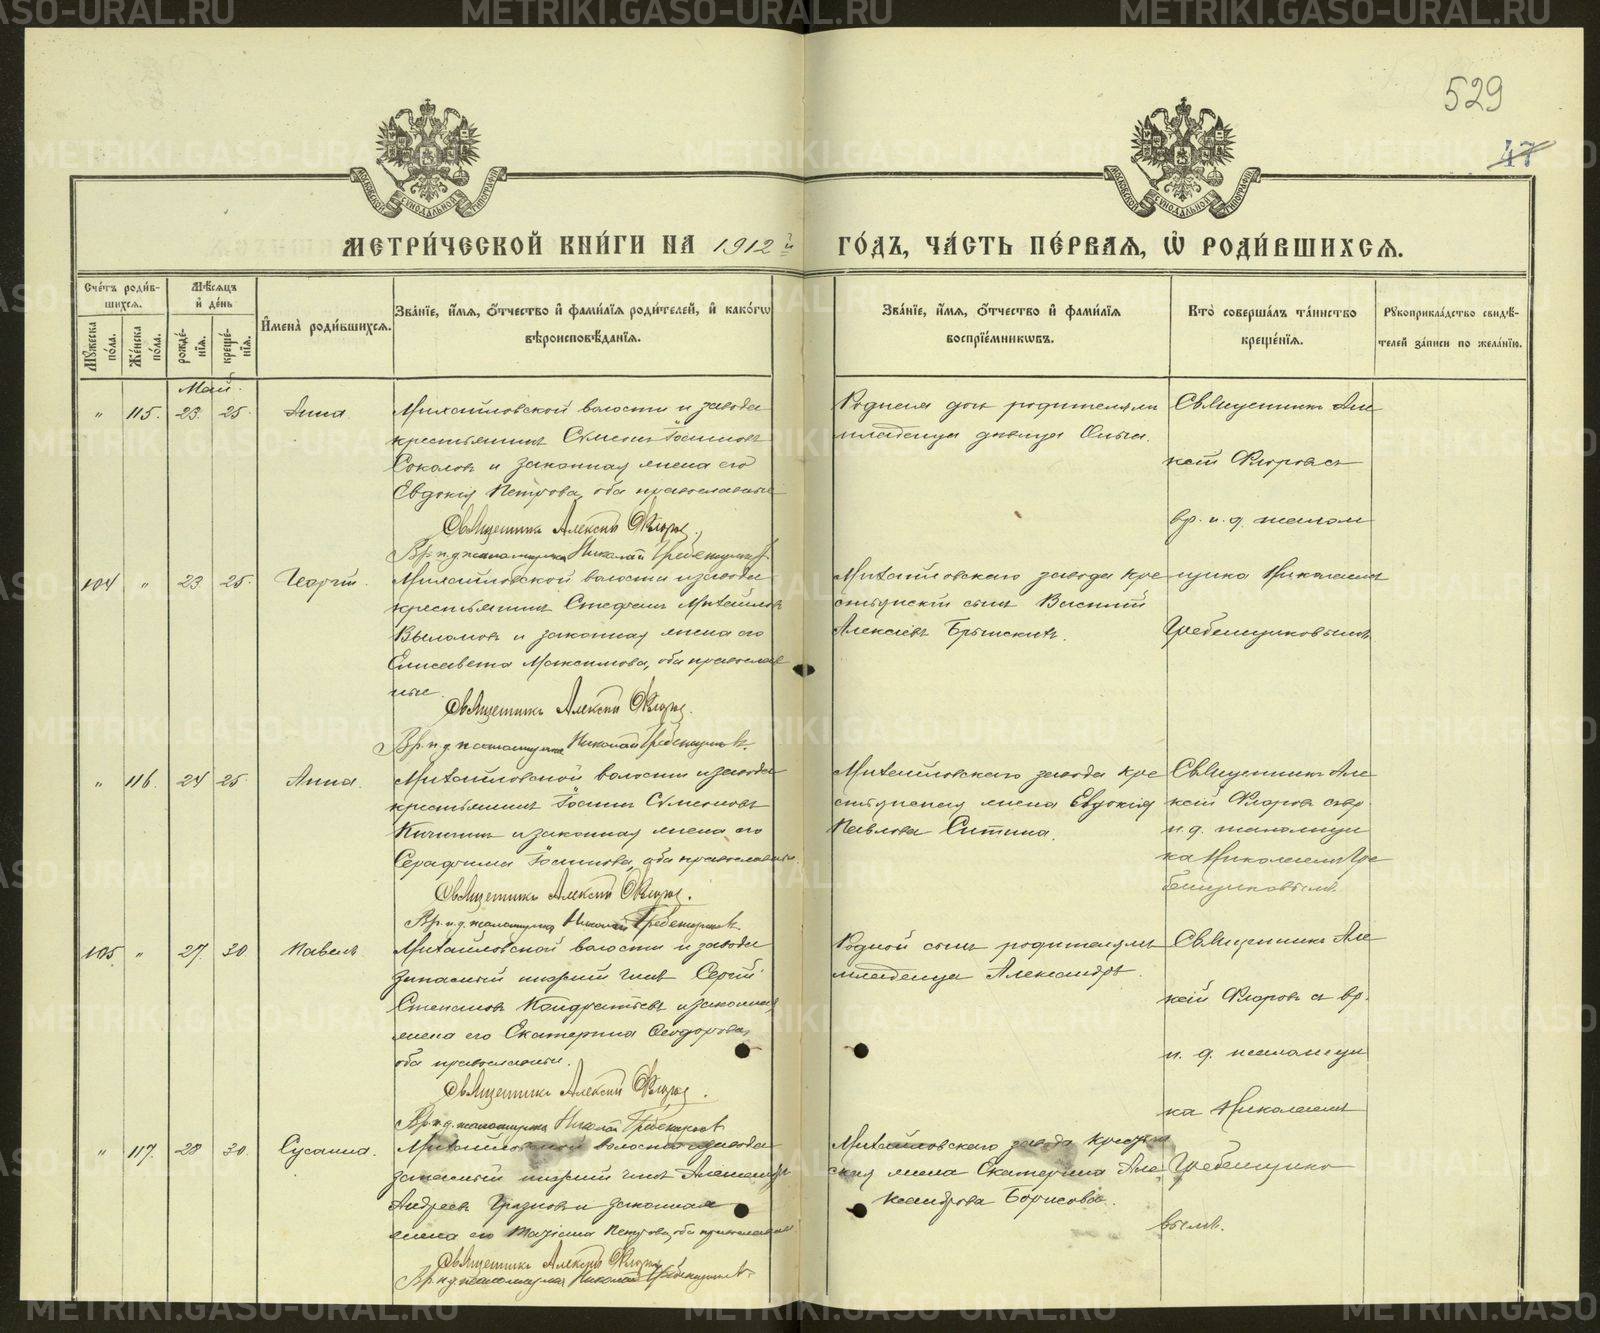 METRIKI.GASO-URAL.RU
529
47
МОСКОВСКОЙ СѴНОДАЛЬНОЙ ТИПОГРАФІИ
МОСКОВСКОЙ СѴНОДАЛЬНОЙ ТИПОГРАФІИ
МЕТРИ́ЧЕСКОЙ КНИ́ГИ НА 1912й ГО́ДЪ, ЧА́СТЬ ПЕ́РВАЯ, Ѡ҆ РОДИ́ВШИХСЯ.
Сче́тъ роди́в-
шихся.
Мꙋ́жеска по́ла.
Же́нска по́ла.
Мѣ́сяцъ
и҆ де́нь
рожде́-
нїѧ.
креще́-
нїѧ.
И҆мена̀ роди́вшихся.
Зва́нїе, и҆́мѧ, ѻ҆́тчество и҆ фами́лїѧ роди́телей, и҆ како́гѡ
вѣроисповѣ́данїѧ.
Зва́нїе, и҆́мѧ, ѻ҆́тчество и҆ фами́лїѧ
воспрїе́мникѡвъ.
Кто̀ соверша́лъ та́инство
креще́нїѧ.
Рꙋкоприкла́дство свидѣ́-
телей за́писи по жела́нїю.
Май.
" 115. 23. 25. Анна
Михайловской волости и завода
крестьянинъ Сѵмеонъ Іоанновъ
Соколовъ и законная жена его
Евдокія Петрова, оба православные
Священникъ Алексій Флоровъ.
Вр. и. д. псаломщика Николай Гребенщиковъ.
Родная дочь родителямъ
младенца девица Ольга.
Священникъ Але
ксій Флоровъ съ
вр. и. д. псалом
щика Николаемъ
Гребенщиковымъ
104 " 23 25. Георгій.
Михайловской волости и завода
крестьянинъ Стефанъ Михайловъ
и законная жена его
Елисавета Максимова, оба православ
ные.
Священникъ Алексій Флоровъ.
Вр. и. д. псаломщика Николай Гребенщиковъ.
Михайловскаго завода кре
стьянскій сынъ Василій
Алексѣевъ
" 116. 24 25. Анна.
Михайловской волости и завода
крестьянинъ Іоаннъ Сѵмеоновъ
и законная жена его
Серафима Іоаннова, оба православные.
Священникъ Алексій Флоровъ.
Вр. и. д. псаломщика Николай Гребенщиковъ.
Михайловскаго завода кре
стьянская жена Евдокія
Павлова Ситина.
Священникъ Але
ксій Флоровъ съ вр.
и. д. псаломщи
ка Николаемъ Гре
бенщиковымъ.
105. " 27. 30. Павелъ
Михайловской волости и завода
запасный нижній чинъ Сергій
Степановъ Кондратьевъ и законная
жена его Екатерина Ѳеодорова,
оба православные.
Священникъ Алексій Флоровъ.
Вр. и. д. псаломщика Николай Гребенщиковъ
Родной сынъ родителямъ
младенца Александръ.
Священникъ Але
ксій Флоровъ съ вр.
и. д. псаломщи
ка Николаемъ
Гребенщико
вымъ.
" 117. 28 30. Сусанна.
Михайловской волости и завода
запасный нижній чинъ Александръ
Андреевъ и законная
жена его Татіана Петрова, оба православные
Священникъ Алексій Флоровъ
Вр. и. д. псаломщика Николай Гребенщиковъ
Михайловскаго завода крестьян
ская жена Екатерина Але
ксандрова Борисова.